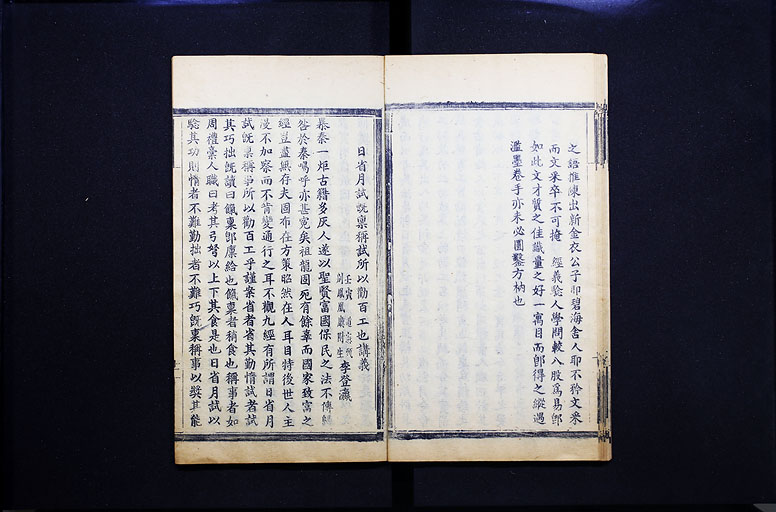 之語推陳出新金衣公子即碧海舍人耶不矜文采
而文采卒不可掩　經義豁人學問較八股為易即
如此文才質之佳識量之好一寓目而即得之縱遇
濫墨卷手亦未必圓鑿方枘也
日省月試既稟稱試所以勸百工也講義
壬寅　道
劍鳳凰廟附生
李登瀛
暴秦一炬古籍多灰人遂以聖賢富國保民之法不傳歸
咎於秦嗚呼亦甚冤矣祖龍固死有餘辜而國家致富之
經豈蓋無存夫固布在方策昭然在人耳目特後世人主
漫不加察而不肯變通行之耳不觀九經有所謂日省月
試既稟稱事所以勸百工乎謹案省者省其勤惰試者試
其巧拙既讀曰餼稟即廩給也餼稟者稍食也稱事者如
周禮稾人職曰考其弓弩以上下其食是也日省月試以
驗其功則惰者不難勤拙者不難巧既稟稱事以獎其能